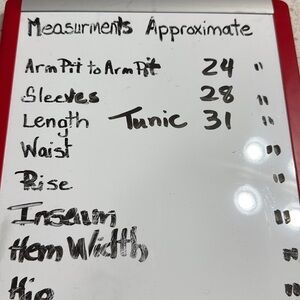 Measurments Approximate
Arm Pit to Arm Pit 24 "
Sleeves 28 "
Length Tunic 31 "
Waist "
Rise
Inseam "
Hem Width
Hip "